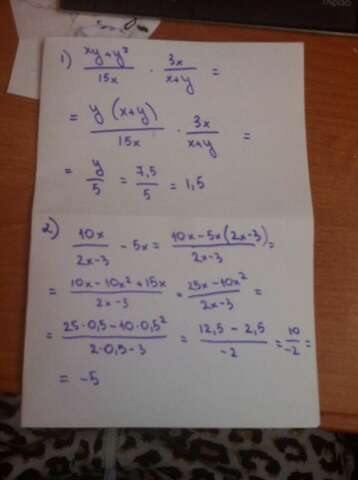 1) (xy+y²)/15x · 3x/(x+y) =
= y(x+y)/15x · 3x/(x+y) =
= y/5 = 7,5/5 = 1,5
2) 10x/(2x-3) - 5x = (10x-5x(2x-3))/(2x-3) =
= (10x-10x²+15x)/(2x-3) = (25x-10x²)/(2x-3) =
= (25·0,5-10·0,5²)/(2·0,5-3) = (12,5-2,5)/-2 = 10/-2 =
= -5